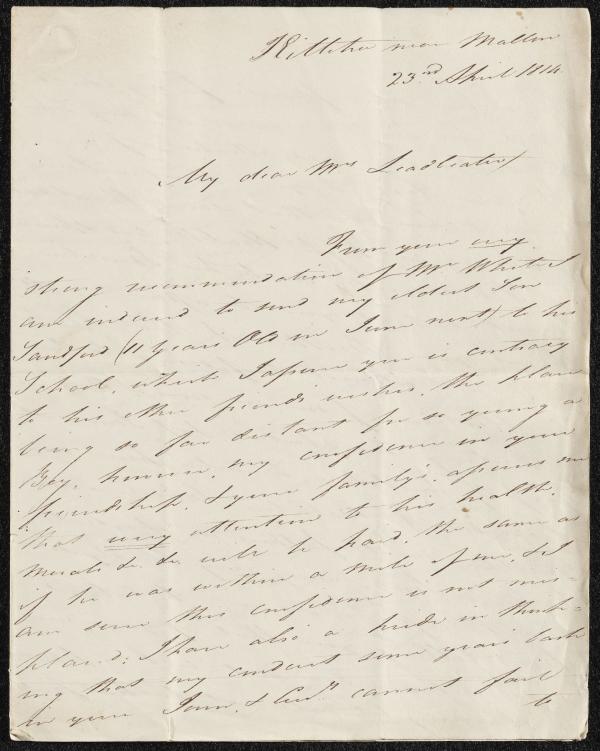 near Mallow
23rd April 1814.
My dear Mrs Leadbeater
From your very
strong recommendation of Mr White I
am induced to send my eldest Son
Sandford (11 Years Old in June next) to his
School, which I assure you is contrary
to his other friends wishes, the place
being so far distant for so young a
Boy, however, my confidence in your
friendship, & your family's, assures me
that every attention to his health,
morals &c. &c. will be paid, the same as
if he was within a mile of me, & I
am sure this confidence is not mis-
placed; I have also a pride in think-
ing that my conduct some years back
in your Town, & cannot fail
to